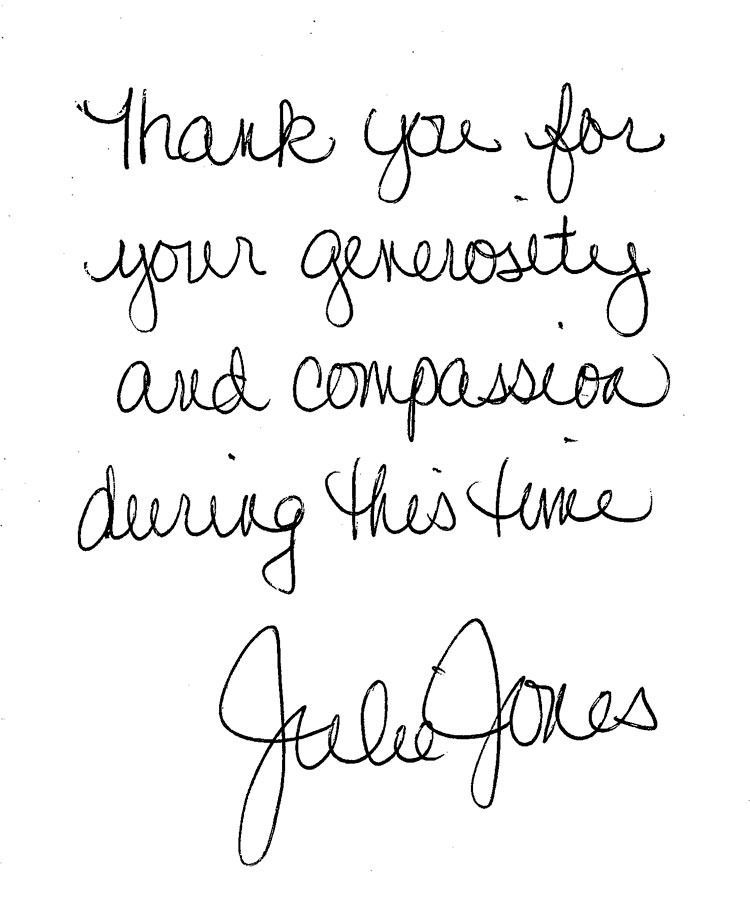 Thank you for
your generosity
and compassion
during this time
Julie Jones